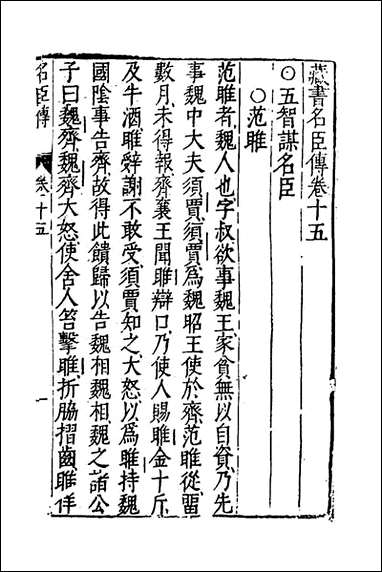 藏書名臣傳卷十五
○五智謀名臣
○范雎
范雎者魏人也字叔欲事魏王家貧無以自資乃先
事魏中大夫須賈須賈爲魏昭王使於齊范雎從畱
數月未得報齊襄王聞雎辯口乃使人賜雎金十斤
及牛酒雎辭謝不敢受須賈知之大怒以爲雎持魏
國陰事告齊故得此饋歸以告魏相魏相魏之諸公
子曰魏齊魏齊大怒使舍人笞擊雎折脇摺齒雎佯
名臣傳 卷十五 一